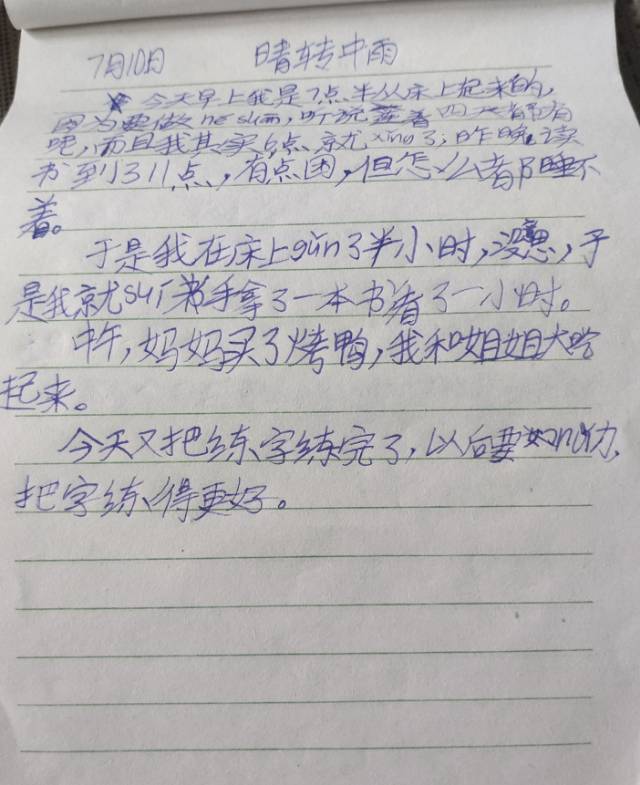 7月10日 晴转中雨
今天早上我是7点半从床上起来的,
因为要做he suan,听说 着四天都有
呢,而且我其实6点就xing了;昨晚读
书到了11点,有点困,但怎么都睡不
着。
于是我在床上gǔn了半小时,没 ,于
是我就suí手拿了一本书看了一小时。
中午,妈妈买了烤鸭,我和姐姐大吃
起来。
今天又把练字练完了,以后要 力,
把字练得更好。